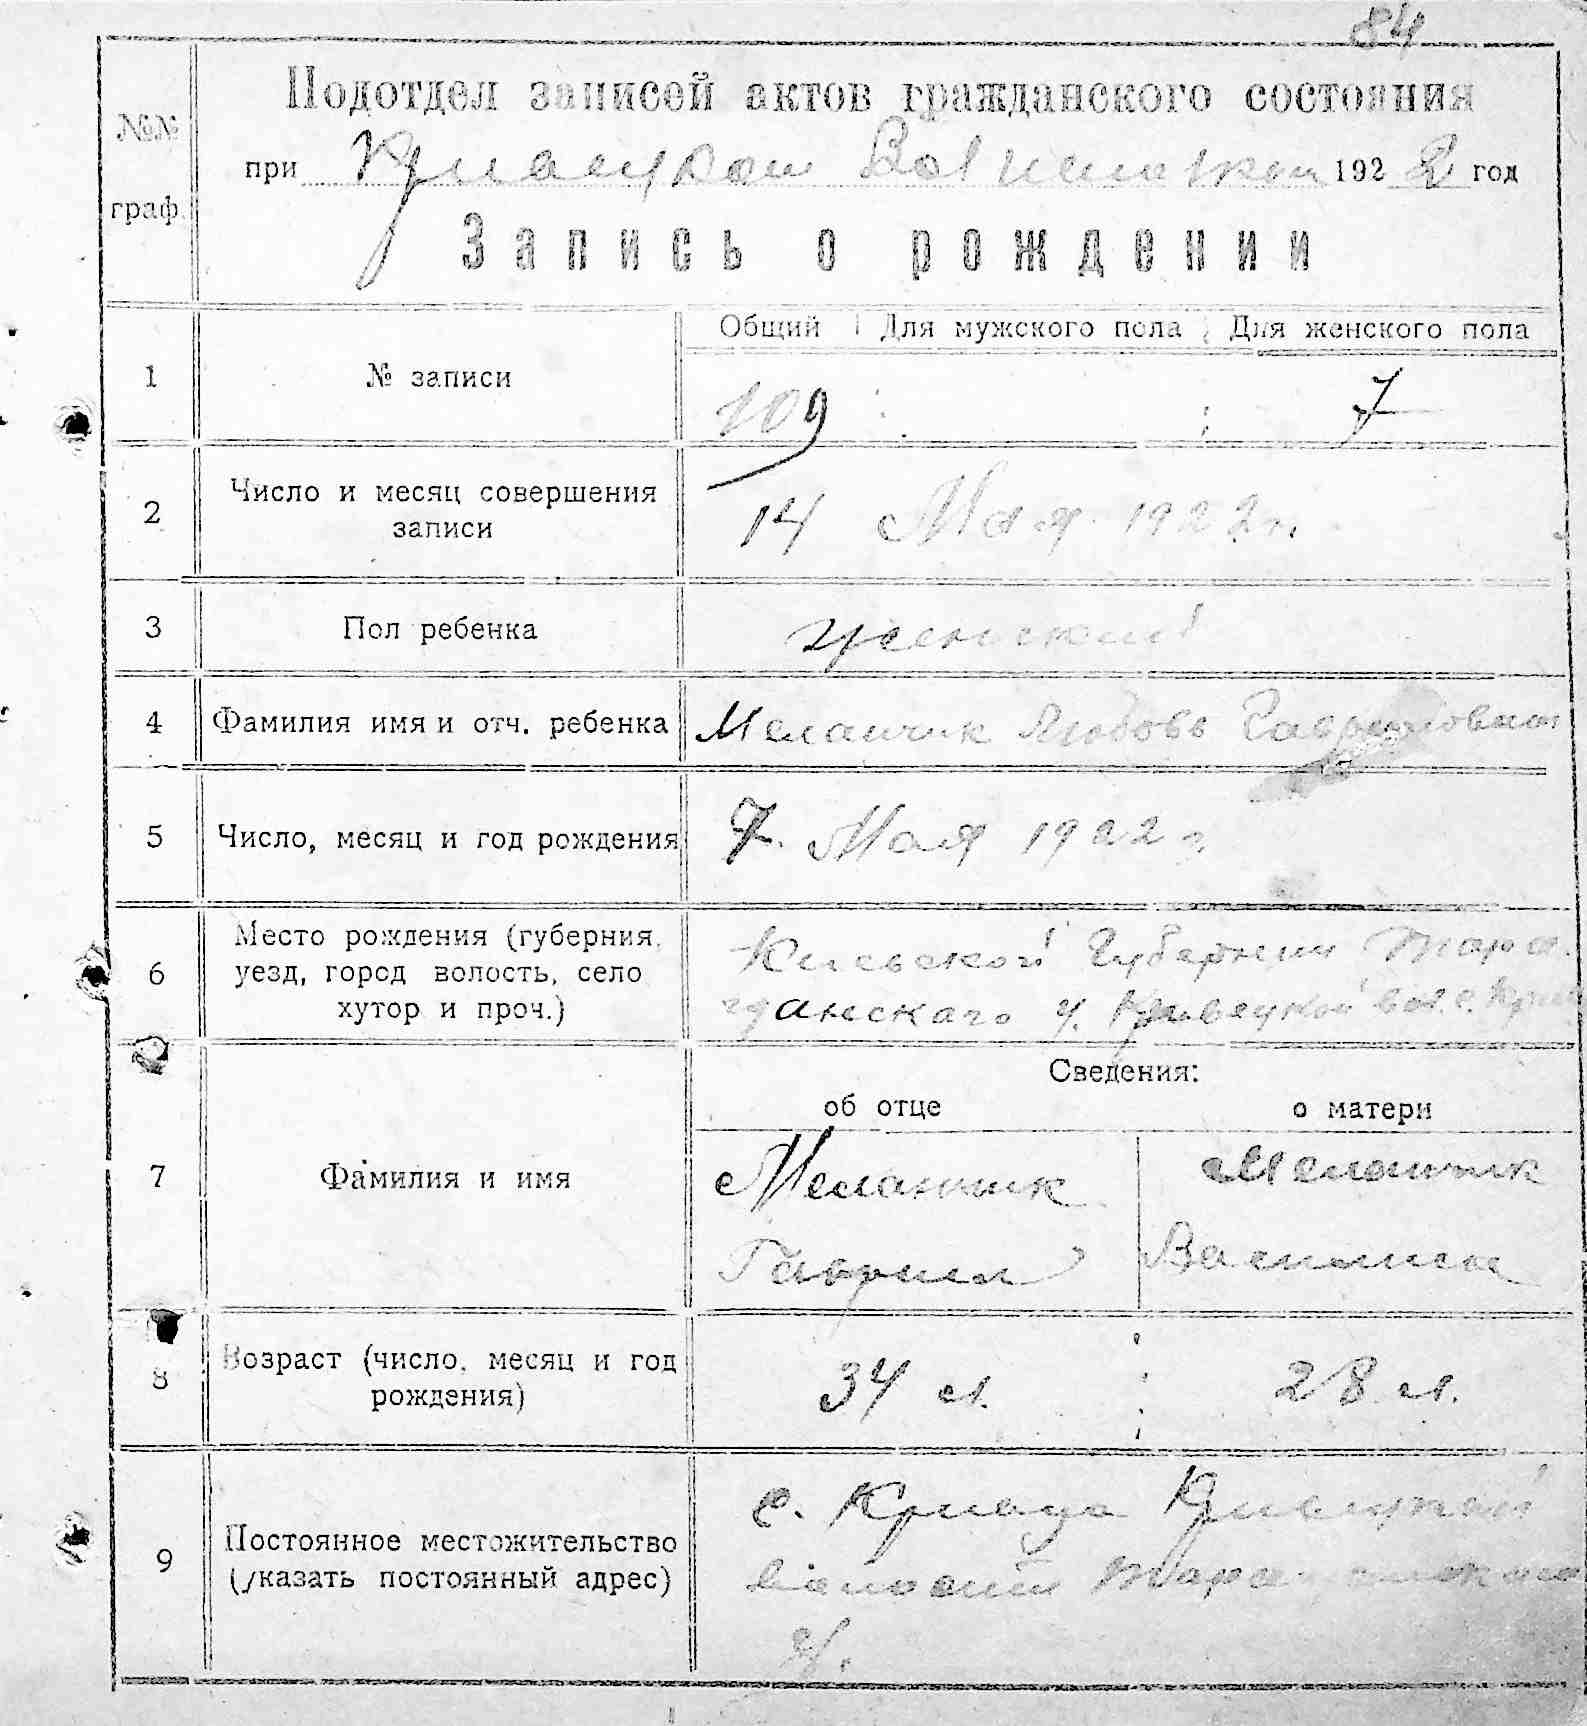 84
Подотдел записей актов гражданского состояния
№№
граф.
при Кривецком Волисполком 1922 год
Запись о рождении
Общий Для мужского пола Для женского пола
1 № записи 109 7
2 Число и месяц совершения записи 14 Мая 1922 г.
3 Пол ребенка женский
4 Фамилия имя и отч. ребенка Меланчик Любовь Гавриловна
5 Число, месяц и год рождения 7. Мая 1922 г.
6 Место рождения (губерния, уезд, город волость, село хутор и проч.)
Киевской Губернии Тара-
щанскаго у. Кривецкой вол. с.
Сведения:
об отце о матери
7 Фамилия и имя
Меланчик Меланчик
Гавриил Василиса
8 Возраст (число, месяц и год рождения) 34 л. 28 л.
9 Постоянное местожительство (указать постоянный адрес)
с. Кривца Кривецкой
волости Таращанскаго
у.